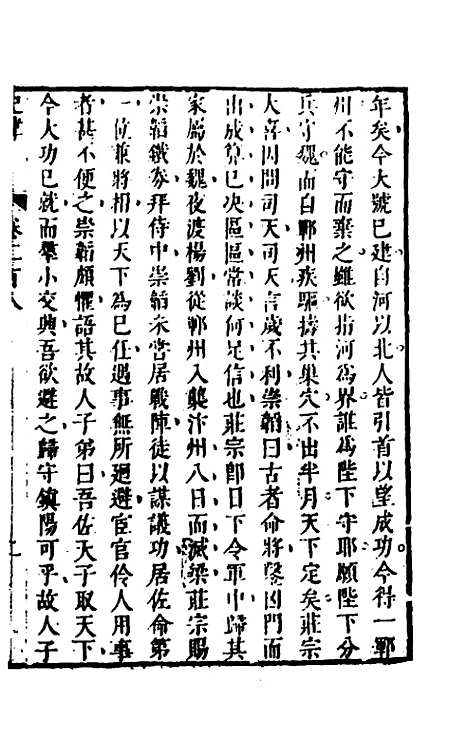 年矣今大號已建自河以北人皆引首以望成功今得一鄆
州不能守而棄之雖欲指河爲界誰爲陛下守耶願陛下分
兵守魏而自鄆州疾驅擣其巢穴不出半月天下定矣莊宗
大喜因問司天司天言歲不利崇韜曰古者命將鑿凶門而
出成算已决區區常談何足信也莊宗卽日下令軍中歸其
家屬於魏夜渡楊劉從鄆州入襲汴州八日而滅梁莊宗賜
崇韜鐵券拜侍中崇韜未嘗居戰陣徒以謀議功居佐命第
一位兼將相以天下為已任遇事無所廻避宦官伶人用事
者甚不便之崇韜頗懼語其故人子弟曰吾佐天子取天下
今大功已就而羣小交興吾欲避之歸守鎮陽可乎故人子
史
卷三百八